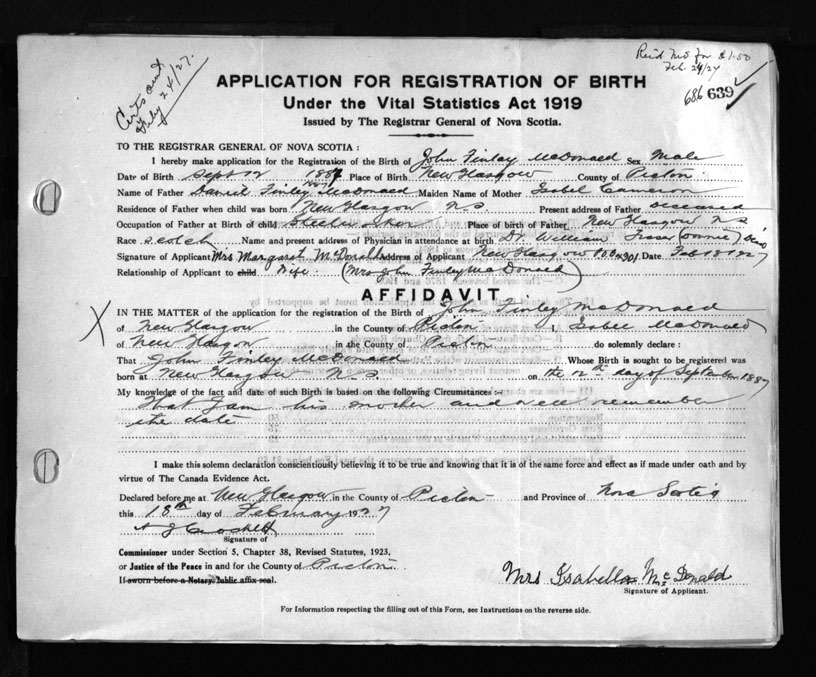 Rec'd M.O. for $1.50
Feb. 24/27
Certs sent
Feby 24/27.
686 639
APPLICATION FOR REGISTRATION OF BIRTH
Under the Vital Statistics Act 1919
Issued by The Registrar General of Nova Scotia.
TO THE REGISTRAR GENERAL OF NOVA SCOTIA :
I hereby make application for the Registration of the Birth of John Finlay McDonald Sex Male
Date of Birth Sept 12 1887 Place of Birth New Glasgow County of Pictou
Name of Father Daniel Finley McDonald Maiden Name of Mother Isobel Cameron
Residence of Father when child was born New Glasgow N.S. Present address of Father deceased
Occupation of Father at Birth of child Steelworker Place of birth of Father New Glasgow N S
Race scotch Name and present address of Physician in attendance at birth Dr William Fraser
Signature of Applicant Mrs Margaret McDonald Address of Applicant New Glasgow Box 301 Date Feb 18 1927
Relationship of Applicant to child Wife. (Mrs John Finley McDonald)
AFFIDAVIT
IN THE MATTER of the application for the registration of the Birth of John Finley McDonald
of New Glasgow in the County of Pictou I, Isobel McDonald
of New Glasgow in the County of Pictou do solemnly declare :
That John Finley McDonald Whose Birth is sought to be registered was
born at New Glasgow N.S. on the 12th day of September 1887
My knowledge of the fact and date of such Birth is based on the following Circumstances :-
That I am his mother and well remember
the date
I make this solemn declaration conscientiously believing it to be true and knowing that it is of the same force and effect as if made under oath and by
virtue of The Canada Evidence Act.
Declared before me at New Glasgow in the County of Pictou and Province of Nova Scotia
this 18th day of February 1927
Signature of
Commissioner under Section 5, Chapter 38, Revised Statutes, 1923,
or Justice of the Peace in and for the County of Pictou.
If sworn before a Notary Public affix seal.
Mrs Isabella McDonald
Signature of Applicant.
For Information respecting the filling out of this Form, see Instructions on the reverse side.